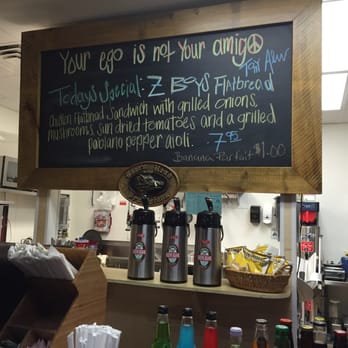 Your ego is not your amigo
Today's Special: Z Boys Flatbread
Chicken Flatbread Sandwich with grilled onions,
mushrooms, sun dried tomatoes and a grilled
pablano pepper aioli. 7.95
Banana Parfait $1.00